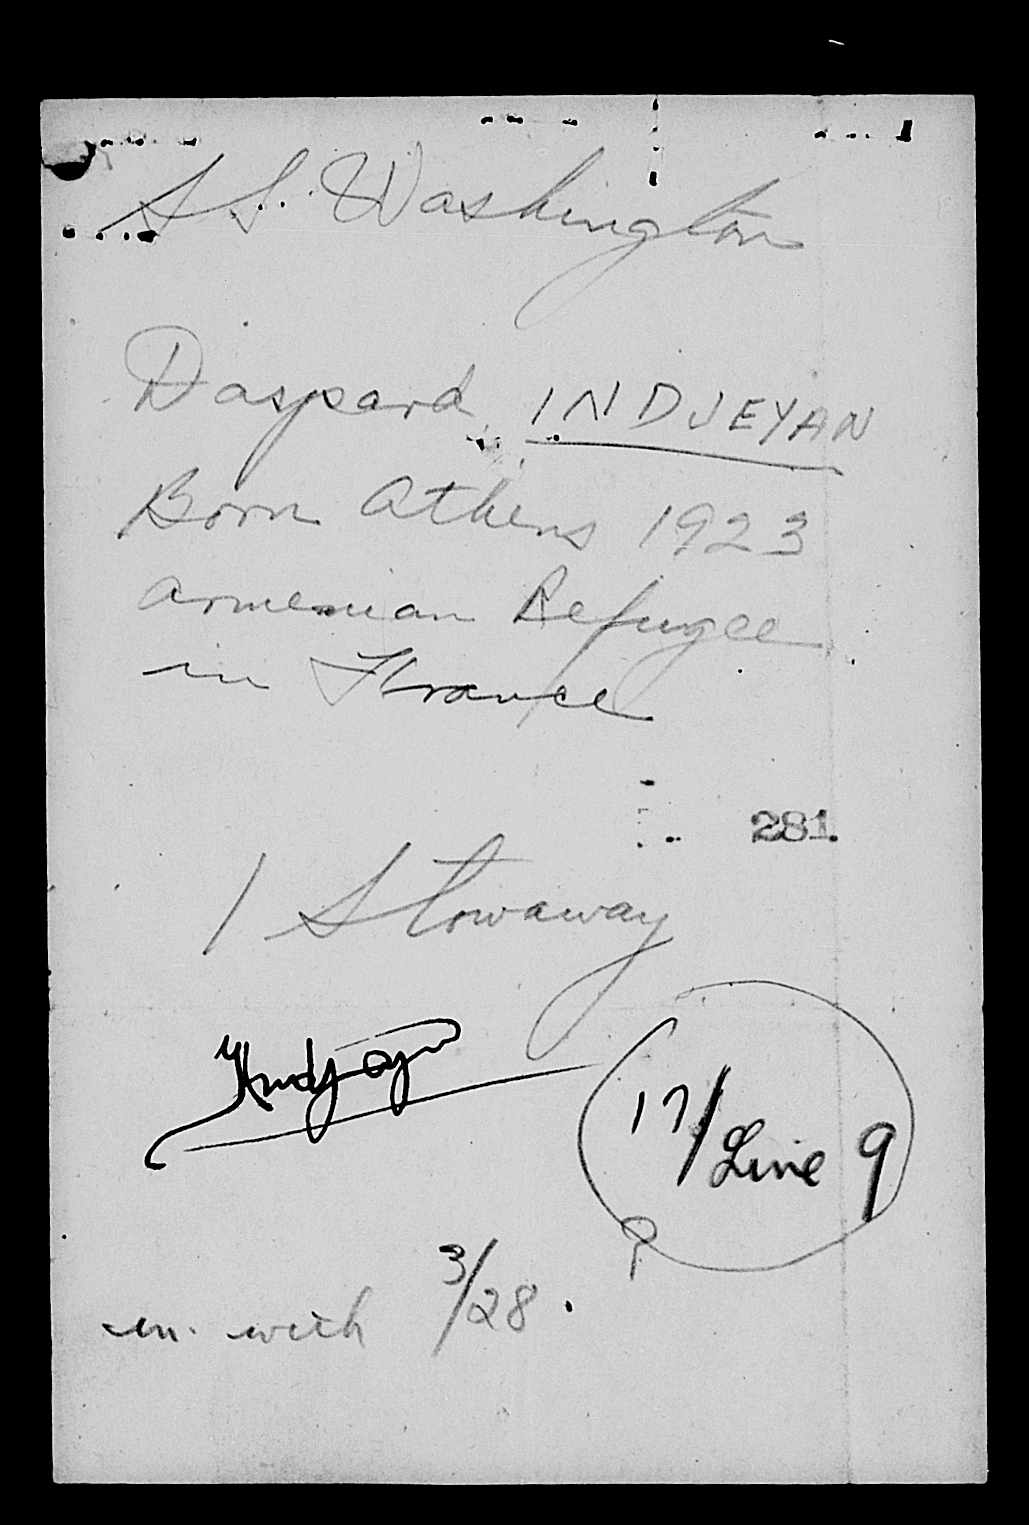 SS. Washington
Daspard INDJEYAN
Born Athens 1923
Armenian Refugee
in France
281.
1 Stowaway
17/Line 9
in. with 3/28.